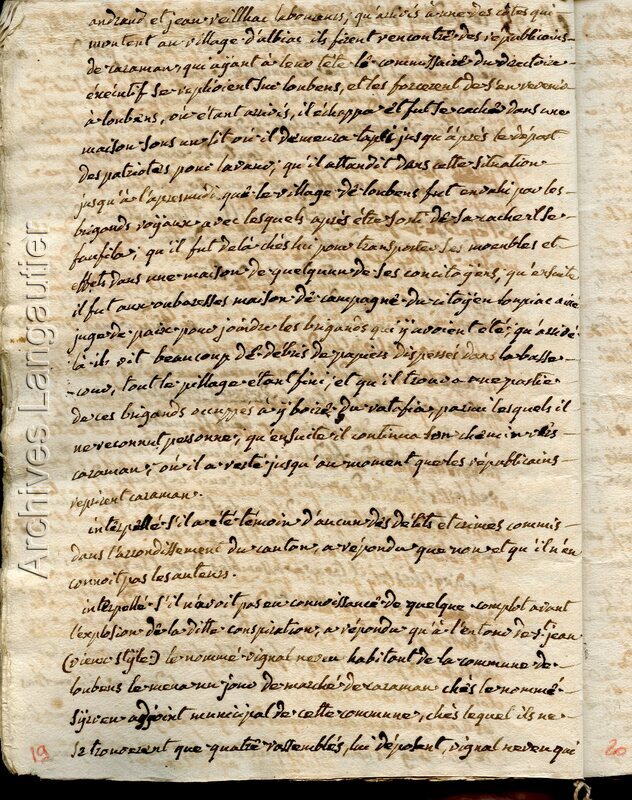 andraud et jean veillhac laboureurs, qu'arrivés à une des côtes qui
montent au village d'albiac ils firent rencontre des républicains
de caraman, qui ayant à leur tête le commissaire du directoire
exécutif se replioient sur loubens, et les forcerent de s'en revenir
à loubens, où étant arrivés, il échappa et fut se cacher dans une
maison sous un lit où il demeura tapi jusqu'après le départ
des patriotes pour lavaur, qu'il attandit dans cette situation
jusqu'à l'apresmidi que le village de loubens fut envahi par les
brigands royaux avec lesquels après être sorti de sa cache il se
faufila, qu'il fut de la chés lui pour transporter ses meubles et
effets dans une maison de quelqu'un de ses concitoyens, qu'ensuite
il fut aux maison de campagne du citoyen
juge de paix pour joindre les brigands qui y avoient eté, qu'arrivé
là il vit beaucoup de débris de papiers dispersés dans la basse
cour, tout le pillage étant fini, et qu'il trouva une partie
de ces brigands occuppés à y boire du ratafia, parmi lesquels il
ne reconnut personne, qu'ensuite il continua son chemin vers
caraman, où il a resté jusqu'au moment que les républicains
reprirent caraman.
interpellé s'il a été témoin d'aucun des délits et crimes commis
dans l'arrondissement du canton, a répondu que non et qu'il n'en
connoit pas les auteurs.
interpellé s'il n'avoit pas eu connoissance de quelque complot avant
l'explosion de la ditte conspiration, a répondu qu'à l'entour de st. jean
(vieux style) le nommé vignal neveu habitant de la commune de
loubens le mena un jour de marché de caraman chés le nommé
adjoint municipal de cette commune, chés lequel ils ne
se trouverent que quatre rassemblés, lui déposent, vignal neveu qui
19
20
Archives Langautier